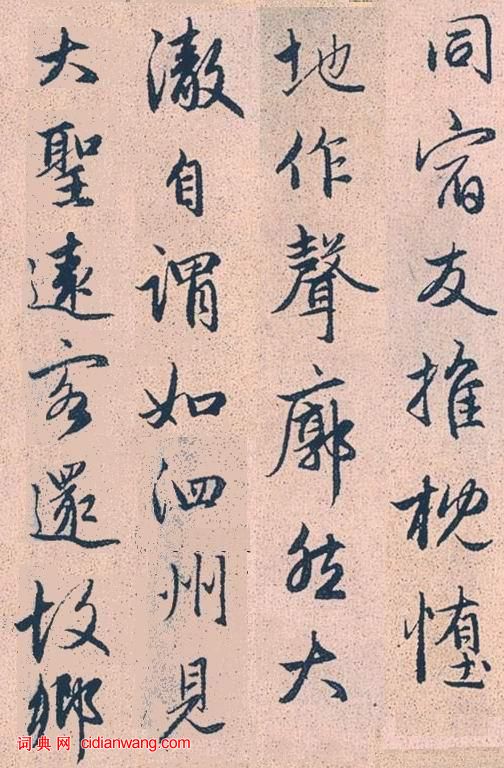 同宿友推枕墯
地作聲廓然大
澈自謂如泗州見
大聖遠客還故鄉
词典网 cidianwang.com